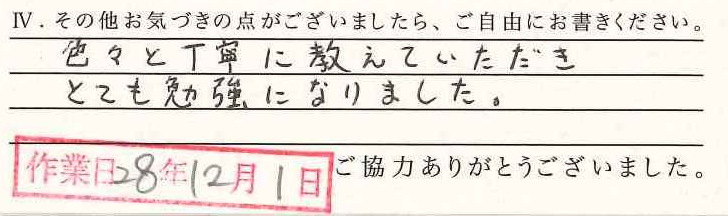 Ⅳ．その他お気づきの点がございましたら、ご自由にお書きください。
色々と丁寧に教えていただき
とても勉強になりました。
作業日28年12月1日
ご協力ありがとうございました。